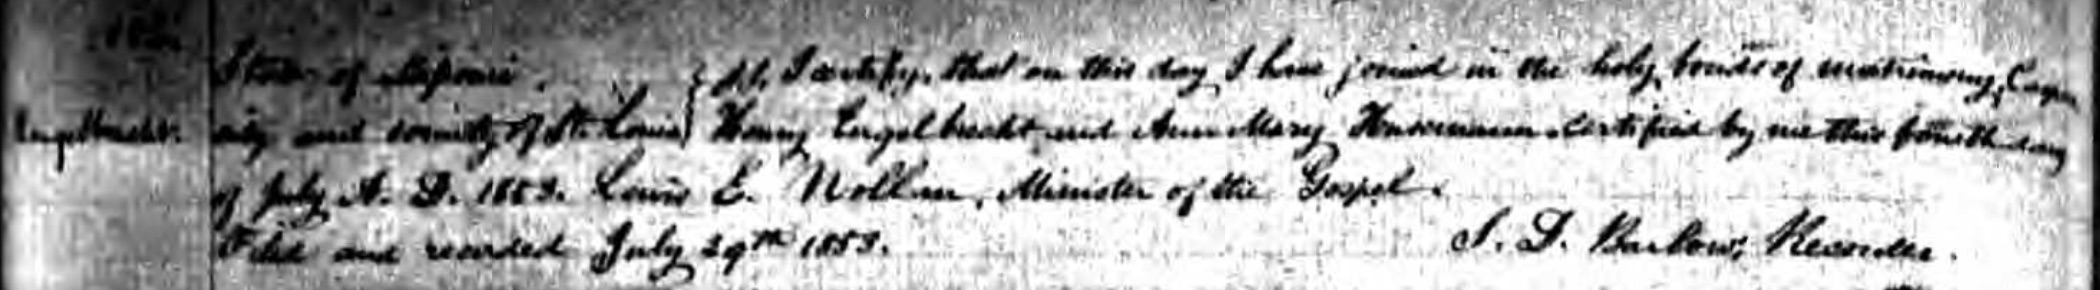 State of Missouri. } ss. I certify, that on this day I have joined in the holy bonds of matrimony,
Engelbrecht. city and county of St. Louis } Henry Engelbrecht and Ann Mary certified by me this fourth day
of July A. D. 1853. Louis E. Nollau, Minister of the Gospel.
Filed and recorded July 29th 1853. S. D. Barlow, Recorder.